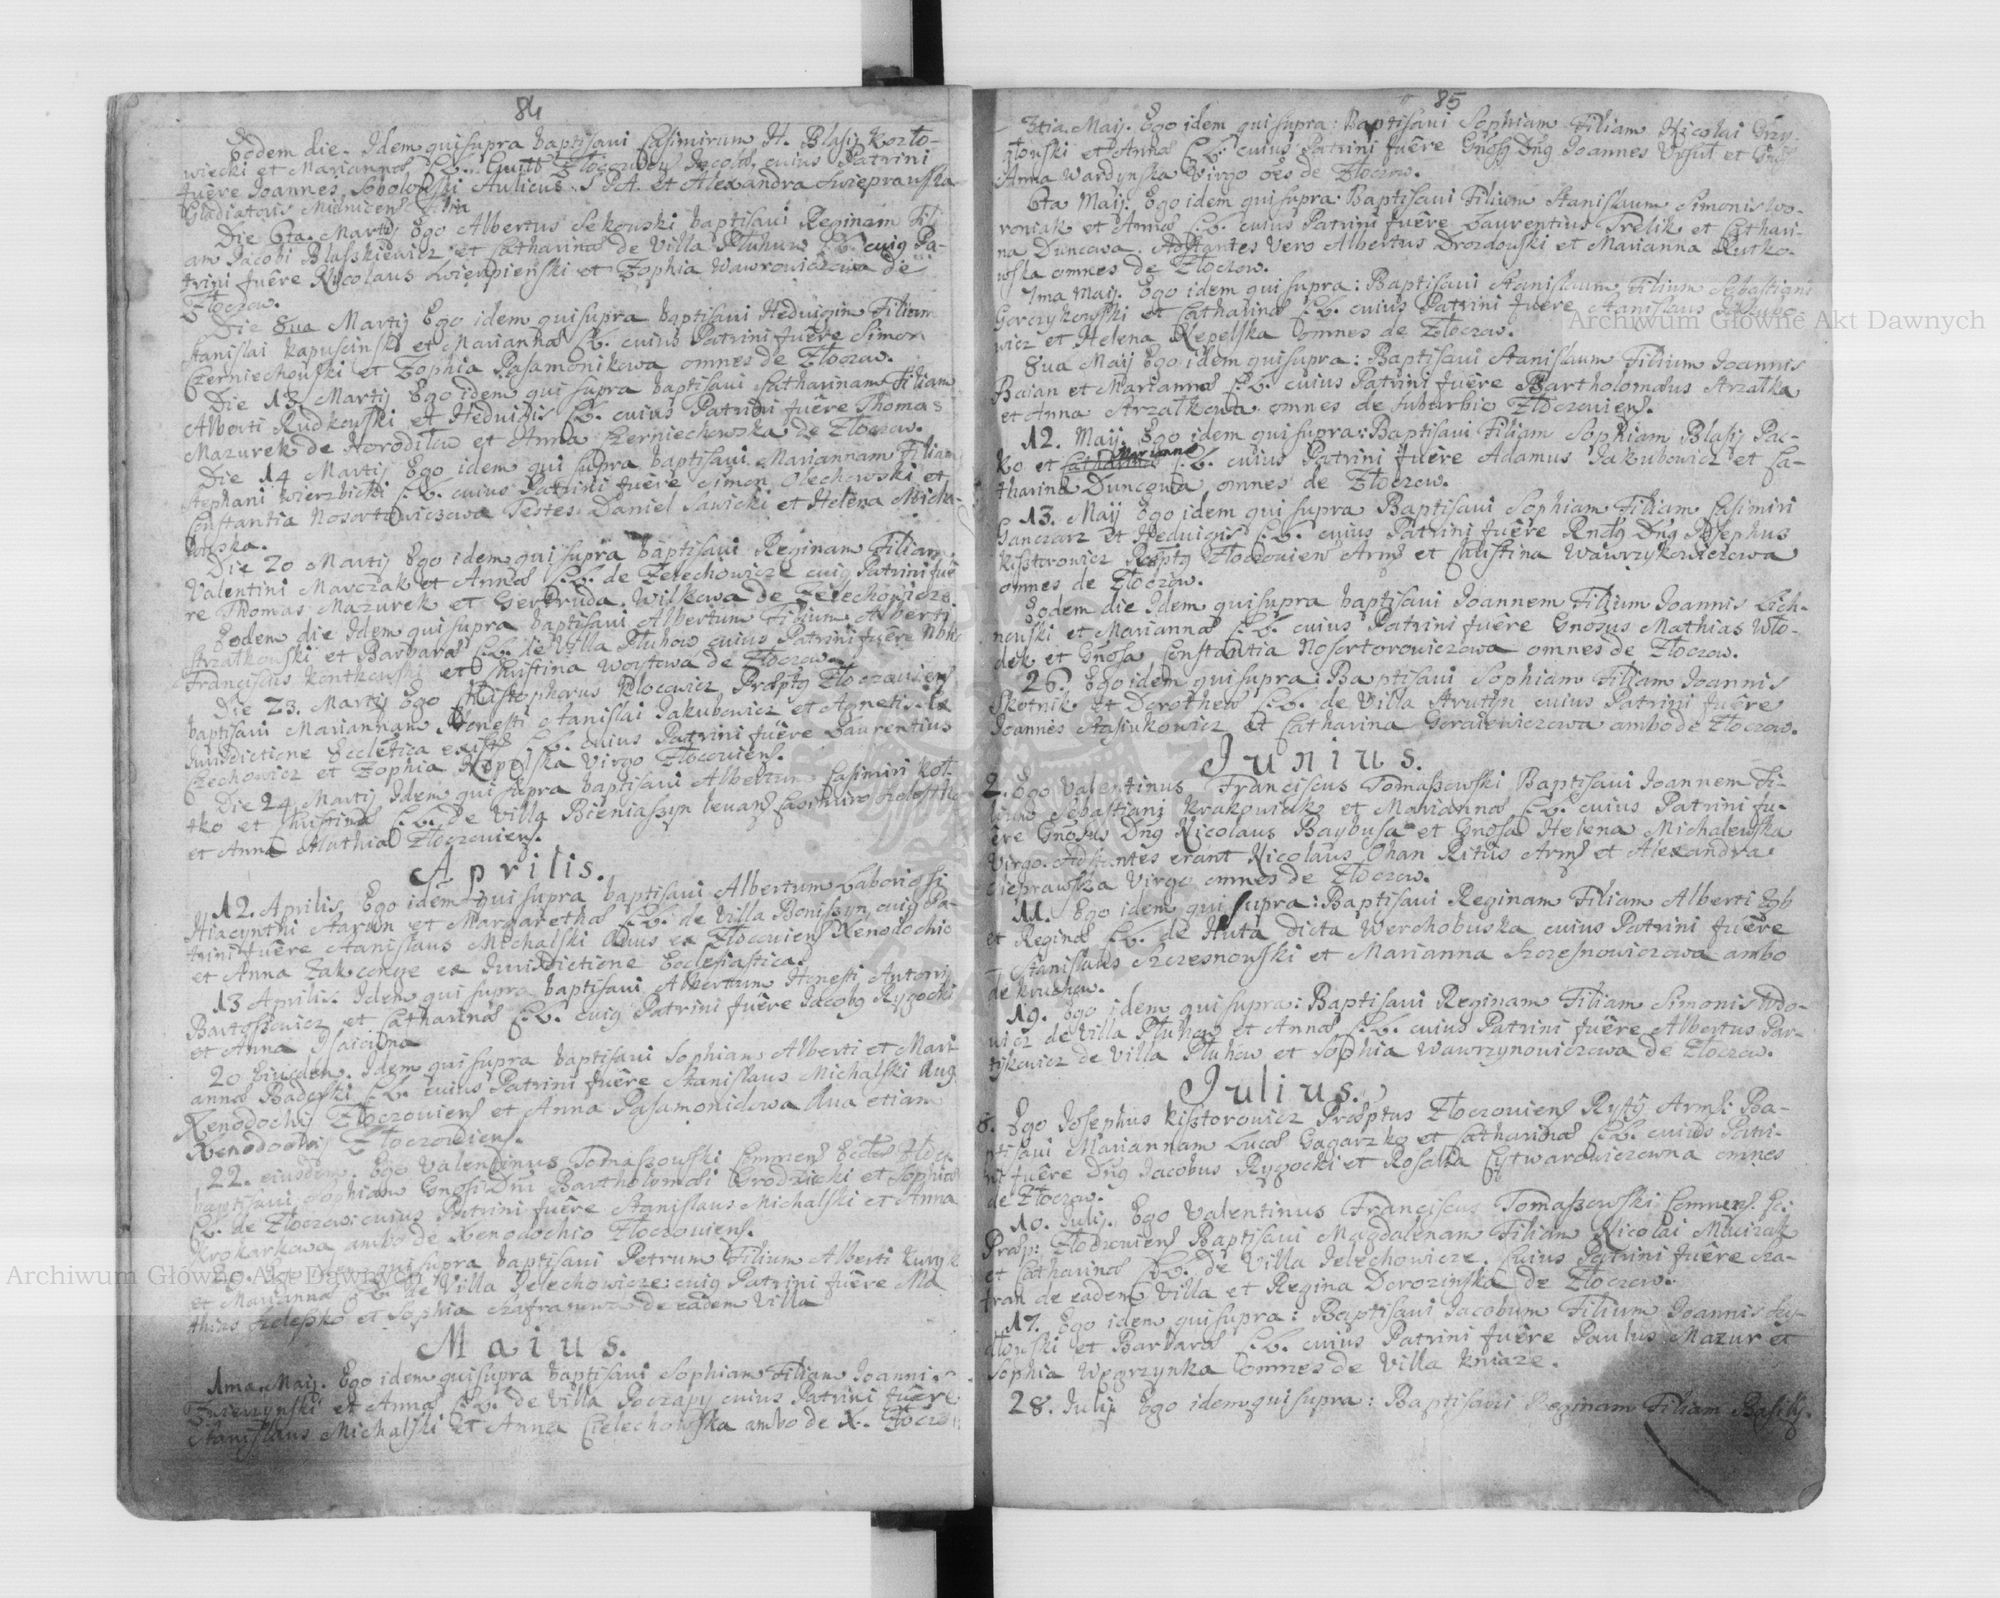 84
Eodem die. Idem qui supra baptisavi Casimirum H. Blasij Kozło-
wiecki et Mariannæ C.L. cuius Patrini
fuêre Joannes Sobolewski Aulicus et Alexandra Swieprawska
Gladiatoris filia
Die 6ta. Martij Ego Albertus Sekowski baptisavi Reginam Fili-
am Jacobi Błaszkiewicz et Catharinæ de Villa Płuhow C.L. cuig Pa-
trini fuêre Nicolaus et Zophia Wawrowiczowa de
Złoczow.
Die 8va Martij Ego idem qui supra baptisavi Hedvigim Filiam
Stanislai Kapuscinski et Mariannæ C.L. cuius Patrini fuêre Simon
Czerniechowski et Zophia Pasamonikowa omnes de Złoczow.
Die 13 Martij Ego idem qui supra baptisavi Catharinam Filiam
Alberti Rudkowski et Hedvigis C.L. cuius Patrini fuêre Thomas
Mazurek de Horodiłow et Anna Czerniechowska de Złoczow.
Die 14 Martij Ego idem qui supra baptisavi Mariannam Filiam
Stephani Wierzbicki C.L. cuius Patrini fuêre Simon Olechowski et
Constantia Testes Daniel Sawicki et Helena Micha-
lewska.
Die 20 Martij Ego idem qui supra baptisavi Reginam Filiam
Valentini Marczak et Annæ C.L. de Zelechowicze cuig Patrini fuê-
re Thomas Mazurek et Gertruda Wilkowa de Zelechowicze
Eodem die Idem qui supra baptisavi Albertum Filium Alberti
Strzałkowski et Barbaræ C.L. de Villa Płuhow cuius Patrini fuêre
Franciscus Kontkowski et Christina Woytowa de Złoczow.
Die 23. Martij Ego Christophorus Præptg Złoczoviens
baptisavi Mariannam Honesti Stanislai Jakubowicz et Agnetis Ex
Jurisdictione Eccletica C.L. cuius Patrini fuêre Laurentius
Czechowicz et Zophia Repelska Virgo Złoczoviens.
Die 24 Martij Idem qui supra baptisavi Albertum Casimiri Kot-
tko et Christinæ C.L. de Villa Bieniaszyn levans Casimiro
et Anna Mathia Złoczoviens.
Aprilis.
12. Aprilis Ego idem qui supra baptisavi Albertum Laboriosi
Hiacynthi et Margarethæ C.L. de Villa Boniszyn cuig Pa-
trini fuêre Stanislaus Michalski Avus ex Złoczoviens Xenodochio
et Anna ex Jurisdictione Ecclesiastica.
13 Aprilis. Idem qui supra baptisavi Albertum Honesti Antoni
Bartoszewicz et Catharinæ C.L. cuig Patrini fuêre Jacobg Rygocki
et Anna
20 Eiusdem. Idem qui supra baptisavi Sophiam Alberti et Mari-
annæ Baderski C.L. cuius Patrini fuêre Stanislaus Michalski Avg
Xenodochij Złoczoviens et Anna Pasamonikowa Ava etiam
Xenodochij Złoczoviens.
22. eiusdem. Ego Valentinus Tomaszowski Commens
baptisavi Sophiam Gnosi Dni Bartholomæi Grodzicki et Sophiæ
C.L. de Złoczow: cuius Patrini fuêre Stanislaus Michalski et Anna
Krokarkowa ambo de Xenodochio Złoczoviens.
29. Ego idem qui supra baptisavi Petrum Filium Alberti
et Mariannæ C.L. de Villa Jelechowicze: cuig Patrini fuêre Ma-
thias et Sophia de eadem Villa
Maius.
1ma. Maij. Ego idem qui supra baptisavi Sophiam Filiam Joannis
et Annæ C.L. de Villa Poczapy cuius Patrini fuêre
Stanislaus Michalski et Anna Cielechowska ambo de X. Złoczo:
85
3tia. Maij. Ego idem qui supra: Baptisavi Sophiam Filiam Nicolai
et Annæ C.L. cuius Patrini fuêre Gnosg Dng Joannes et Gnosa
Anna Wardynska Virgo oes de Złoczow.
6ta Maij. Ego idem qui supra: Baptisavi Filium Stanislaum Simonis Wo-
roniak et Annæ C.L. cuius Patrini fuêre Laurentius Trelik et Cathari-
na Duncowa. Adstantes vero Albertus Drozdowski et Marianna Rutko-
wska omnes de Złoczow.
7ma Maij. Ego idem qui supra: Baptisavi Stanislaum Filium Sebastiani
Gorczykowski et Catharinæ C.L. cuius Patrini fuêre Stanislaus Jakubo-
wicz et Helena Repelska omnes de Złoczow.
8va Maij Ego idem qui supra: Baptisavi Stanislaum Filium Joannis
Baian et Mariannæ C.L. cuius Patrini fuêre Bartholomæus Strzałka
et Anna Strzałkowa omnes de suburbio Złoczoviens.
12. Maij. Ego idem qui supra: Baptisavi Filiam Sophiam Blasij Pac-
ko et Catharinæ Mariannæ C.L. cuius Patrini fuêre Adamus Jakubowicz et Ca-
tharina Duncowa omnes de Złoczow.
13. Maij Ego idem qui supra Baptisavi Sophiam Filiam Casimiri
Ganczarz et Hedvigis C.L. cuius Patrini fuêre Rndg Dng Josephus
Kisztorowicz Præptg Złoczovien Arms et Christina Wawrzykowiczowa
omnes de Złoczow.
Eodem die Idem qui supra baptisavi Joannem Filium Joannis Lech-
nowski et Mariannæ C.L. cuius Patrini fuêre Gnosus Mathias Wło-
dek et Gnosa Constantia Nosortorowiczowa omnes de Złoczow.
26. Ego idem qui supra: Baptisavi Sophiam Filiam Joannis
Skotnik et Dorotheæ C.L. de Villa Strutyn cuius Patrini fuêre
Joannes Stasiukowicz et Catharina Goraiewiczowa ambo de Złoczow.
Junius.
2. Ego Valentinus Franciscus Tomaszowski Baptisavi Joannem Fi-
lium Sebastiani Krakowiak et Mariannæ C.L. cuius Patrini fu-
êre Gnosus Dng Nicolaus Baybusa et Gnosa Helena Michalewska
Virgo. Adstantes erant Nicolaus Ohan Ritus Arms et Alexandra
Cieprawska Virgo omnes de Złoczow.
11. Ego idem qui supra: Baptisavi Reginam Filiam Alberti
et Reginæ C.L. de Huta dicta Werchobuska cuius Patrini fuêre
Stanislaus Szczesnowski et Marianna Szczesnowiczowa ambo
de Kruhow.
19. Ego idem qui supra: Baptisavi Reginam Filiam Simonis Wdo-
wicz de Villa Płuhow et Annæ C.L. cuius Patrini fuêre Albertus Par-
tykewicz de Villa Płuhow et Sophia Wawrzynowiczowa de Złoczow.
Julius.
8. Ego Josephus Kisztorowicz Præptus Złoczoviens Ryty Arms: Ba-
ptisavi Mariannam Lucæ Gagarzko et Catharinæ C.L. cuius Patri-
ni fuêre Dng Jacobus Rygocki et Rosalia omnes
de Złoczow.
10. Julij. Ego Valentinus Franciscus Tomaszowski Commens. Ec:
Præp: Złoczoviens Baptisavi Magdalenam Filiam Nicolai
et Catharinæ C.L. de Villa Jelechowicze. Cuius Patrini fuêre Sza-
fran de eadem Villa et Regina Dorozinska de Złoczow.
17. Ego idem qui supra: Baptisavi Jacobum Filium Joannis
et Barbaræ C.L. cuius Patrini fuêre Paulus Mazur et
Sophia Węgrzynka omnes de Villa Kniaze.
28. Julij Ego idem qui supra: Baptisavi Reginam Filiam Basilij.
Archiwum Główne Akt Dawnych
Archiwum Główne Akt Dawnych